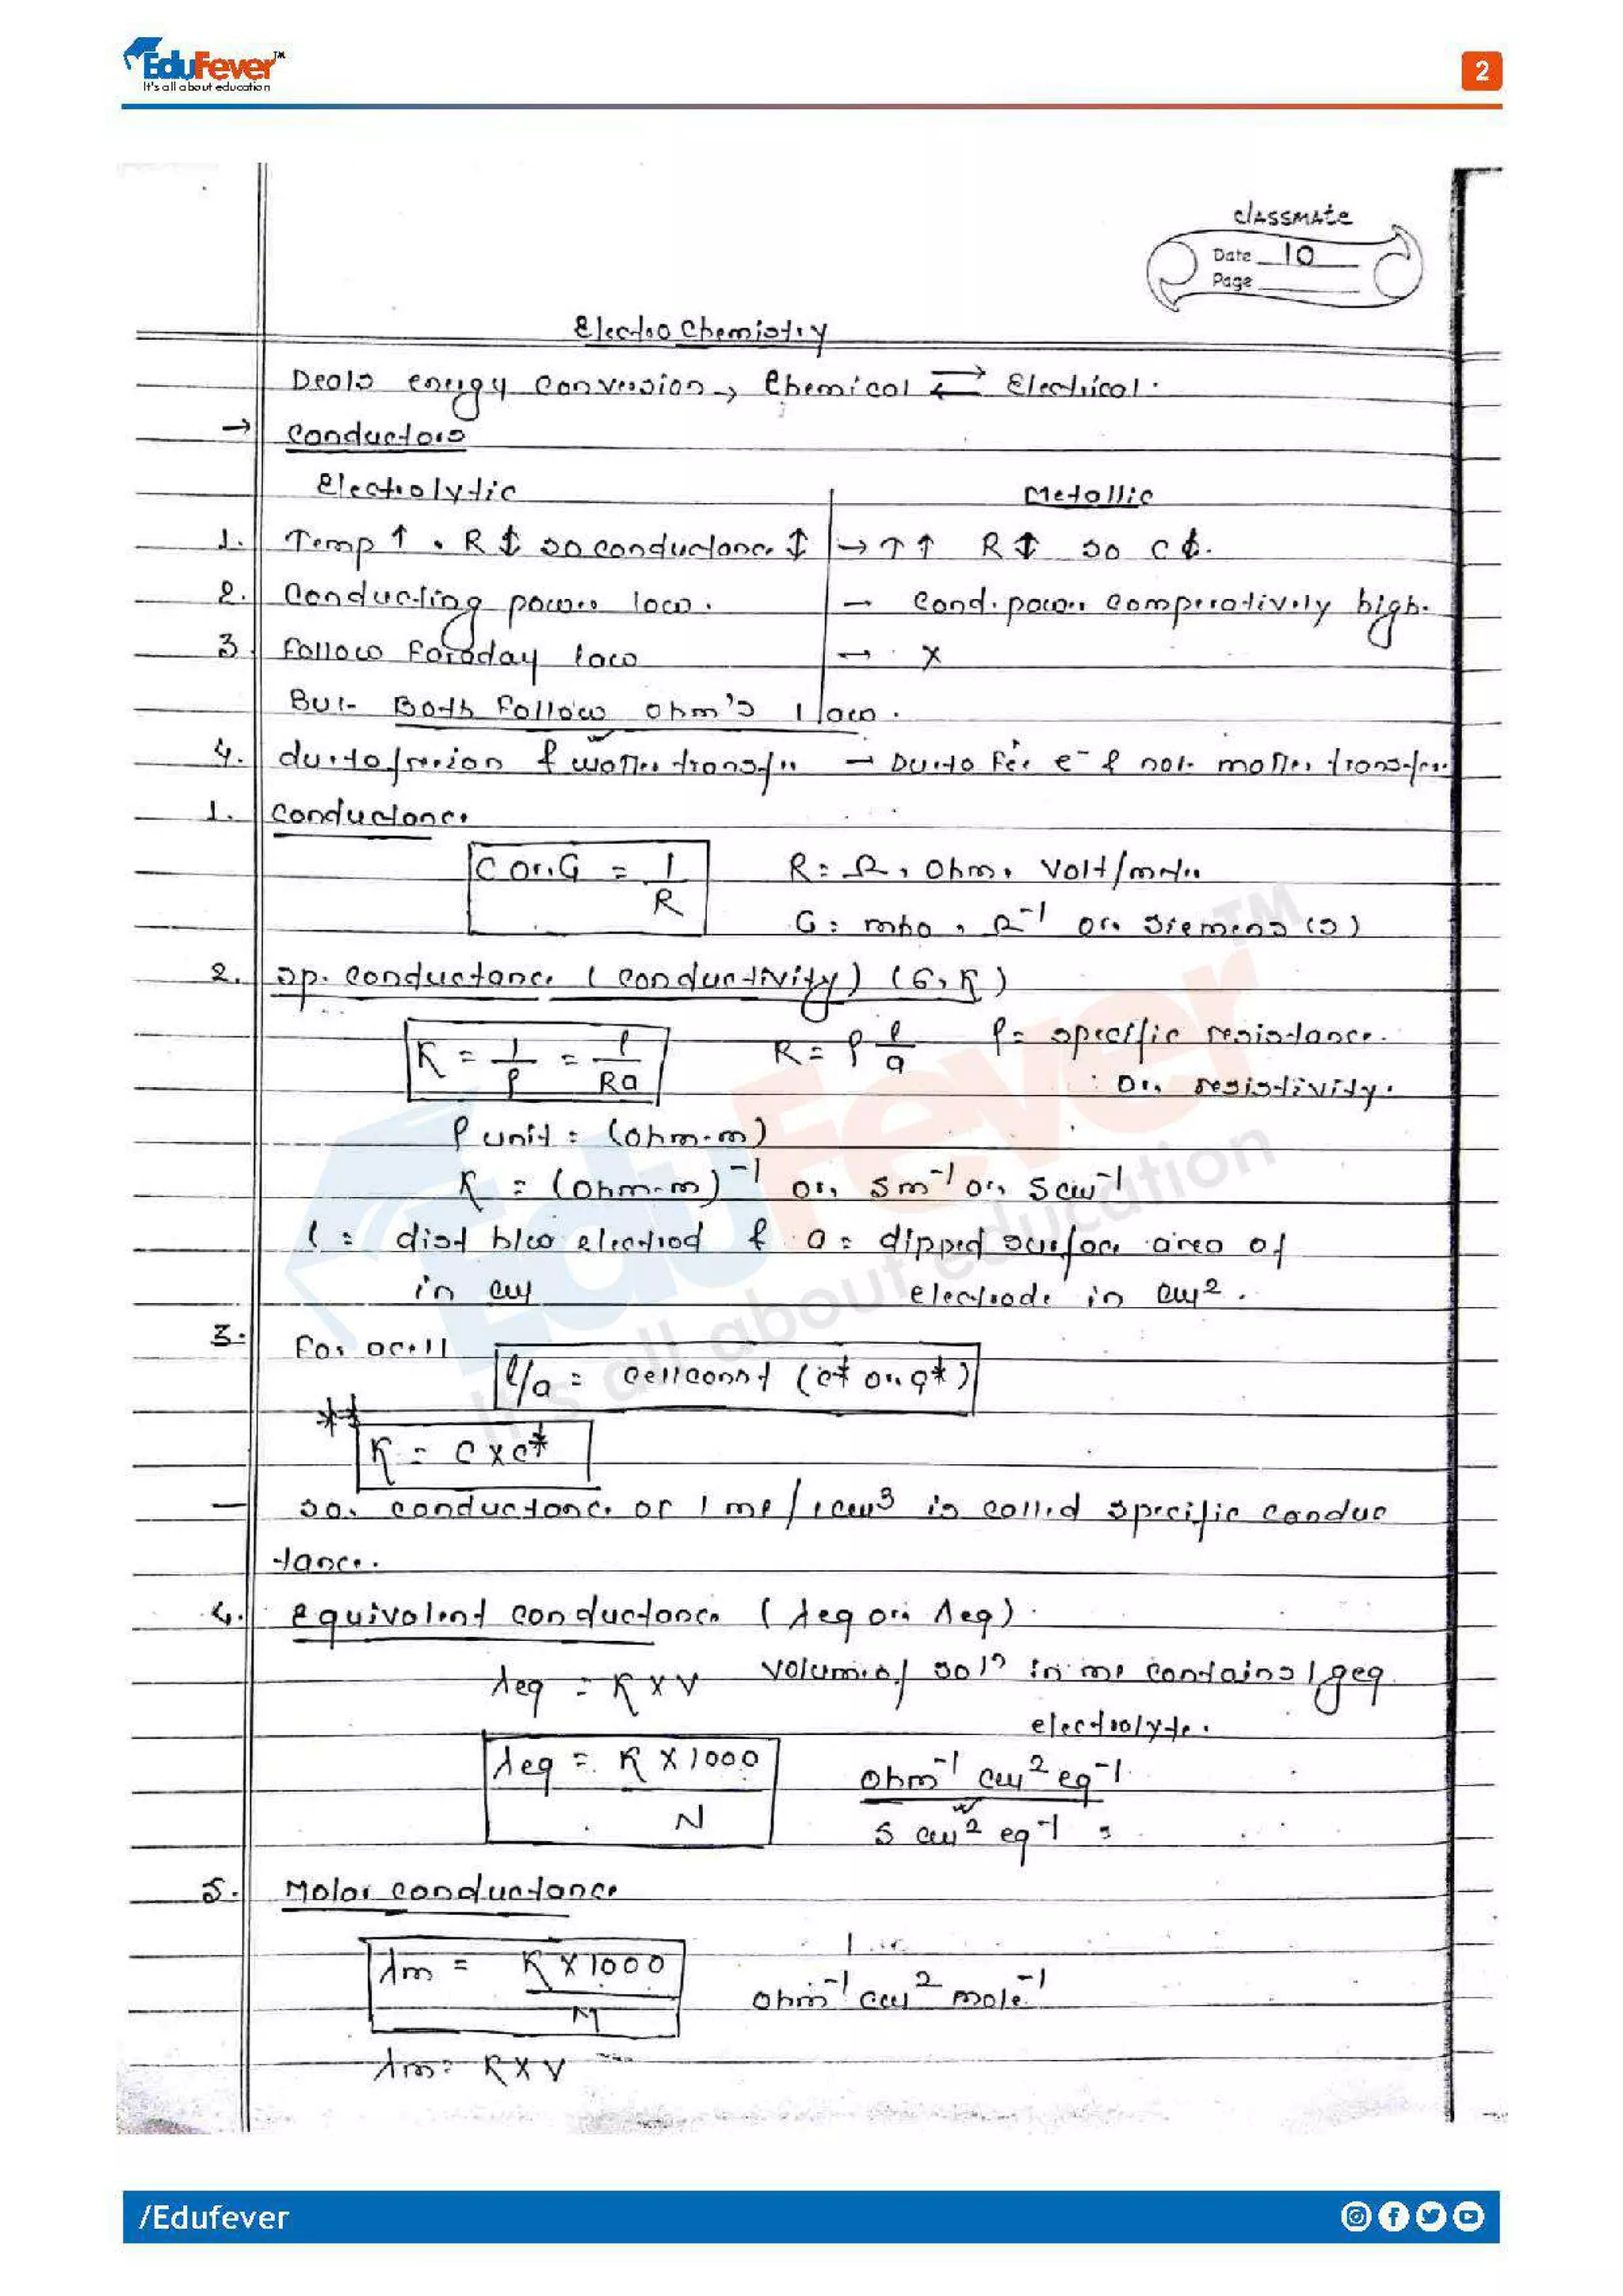 EduFever™
It's all about education
2
classmate
Date 10
Page
Electro Chemistry
Deals energy conversion → Chemical ⇄ Electrical.
→ Conductors
Electrolytic Metallic
1. Temp ↑ , R so conductance → T ↑ R so C
2. Conducting power low. — Cond. power comparatively high.
3 Follow Faraday law → X
But Both Follow ohm's law.
4. due to free ion & matter transfer — Due to free e⁻ & not matter transfer
1. Conductance
C or G = 1/R R = Ω, Ohm, Volt/
G = mho, Ω⁻¹ or Siemens (S)
2. sp. conductance (conductivity) (G, K)
K = 1/ρ = l/Ra R = ρ l/a ρ = specific resistance.
or resistivity.
ρ unit = (ohm-m)
K = (ohm-m)⁻¹ or Sm⁻¹ or S cm⁻¹
l = dist b/w electrod & a = dipped surface area of
in cm electrode in cm².
3. For a cell l/a = cell const (c* or G*)
** K = C x c*
— so, conductance of 1 ml / 1 cm³ is called specific conduc
tance.
4. equivalent conductance (λeq or Λeq)
λeq = K x V volume of solⁿ in ml contains 1 geq
electrolyte.
λeq = K X 1000 / N ohm⁻¹ cm² eq⁻¹
S cm² eq⁻¹
5. Molar conductance
λm = K X 1000 / M ohm⁻¹ cm² mole⁻¹
λm = K X V
/Edufever